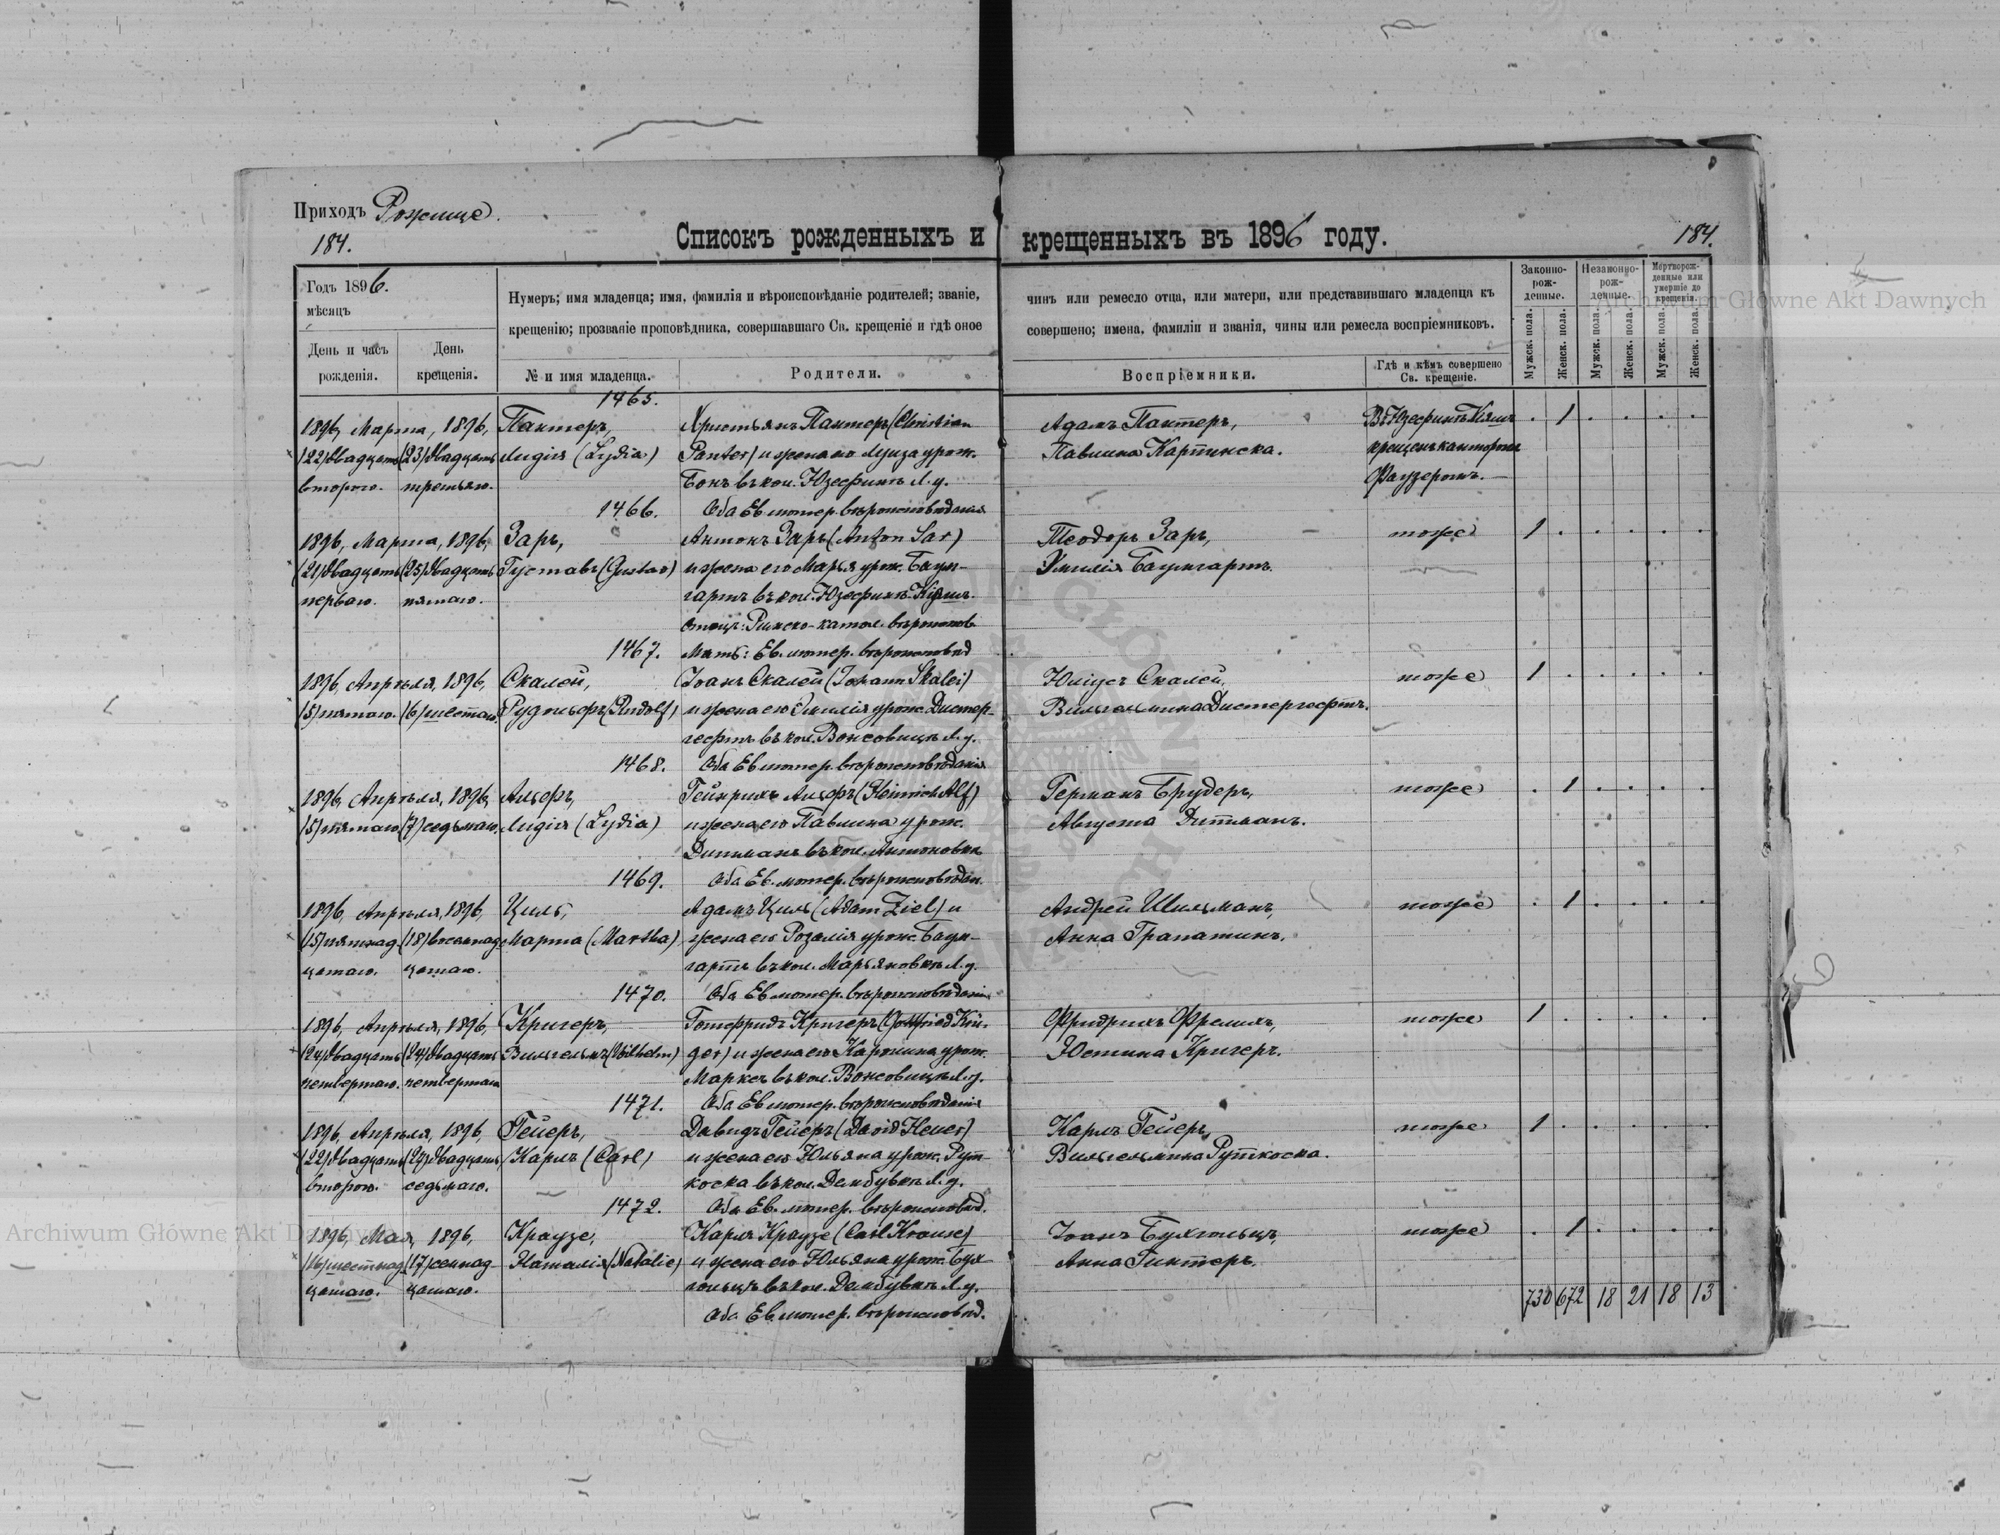 Приходъ Рожище.
184.
Списокъ рожденныхъ и крещенныхъ въ 1896 году.
184.
Годъ 1896.
мѣсяцъ
День и часъ рожденія.
День крещенія.
Нумеръ; имя младенца; имя, фамилія и вѣроисповѣданіе родителей; званіе, чинъ или ремесло отца, или матери, или представившаго младенца къ
крещенію; прозваніе проповѣдника, совершавшаго Св. крещеніе и гдѣ оное совершено; имена, фамиліи и званія, чины или ремесла воспріемниковъ.
№ и имя младенца.
Родители.
Воспріемники.
Гдѣ и кѣмъ совершено Св. крещеніе.
Законно-рож-денные.
Незаконно-рож-денные.
Мертворож-денные или умершіе до крещенія.
Мужск. пола. Женск. пола. Мужск. пола. Женск. пола. Мужск. пола. Женск. пола.
1465.
1896, Марта, 1896, Пантеръ, Христьянъ Пантеръ (Christian Адамъ Пантеръ, . 1 . . . .
(22) двадцать (23) двадцать Лидія (Lydia) Panter) и жена его Луиза урож. Павлина Картинска. крещенъ канторомъ
второго. третьяго. Бонъ въ кол. Юзефинъ Л. у. Фаузеромъ.
1466. Оба Ев. лютер. вѣроисповѣданія
1896, Марта, 1896, Заръ, Антонъ Заръ (Anton Sar) Теодоръ Заръ, тоже 1 . . . . .
(21) двадцать (25) двадцать Густавъ (Gustav) и жена его Марья урож. Баум- Эмилія Баумгартъ.
перваго. пятаго. гартъ въ кол. Юзефинъ
отецъ: Римско-катол. вѣроисповѣд
1467. Мать: Ев. лютер. вѣроисповѣд
1896, Апрѣля, 1896, Скалей, Іоанъ Скалей (Johann Skalei) Юліусъ Скалей, тоже 1 . . . . .
(5) пятаго. (6) шестаго. Рудольфъ (Rudolf) и жена его Эмилія урож. Дистер- Вильгельмина Дистергефтъ.
гефтъ въ кол. Вонсовичъ Л. у.
1468. Оба Ев. лютер. вѣроисповѣданія
1896, Апрѣля, 1896, Альфъ, Гейнрихъ Альфъ (Heinrich Alf) Германъ Брудеръ, тоже . 1 . . . .
(5) пятаго (7) седьмаго. Лидія (Lydia) и жена его Павлина урож. Августа Дитманъ.
Дитманъ въ кол. Антоновка
1469. Оба Ев. лютер. вѣроисповѣдан.
1896, Апрѣля, 1896, Циль, Адамъ Циль (Adam Ziel) и Андрей Шильманъ, тоже . 1 . . . .
(15) пятнад (18) восемнад Марта (Martha) жена его Розалія урож. Баум- Анна Грапатинъ.
цатаго. цатаго. гартъ въ кол. Марьяновкѣ Л. у.
1470. Оба Ев. лютер. вѣроисповѣданія
1896, Апрѣля, 1896, Кригеръ, Готфридъ Кригеръ (Gottfried Krü- Фридрихъ Фрелихъ, тоже 1 . . . . .
(24) двадцать (24) двадцать Вильгельмъ (Wilhelm) ger) и жена его Каролина урож. Юстина Кригеръ.
четвертаго. четвертаго Марксъ въ кол. Вонсовичъ Л. у.
1471. Оба Ев. лютер. вѣроисповѣданія
1896, Апрѣля, 1896, Гейеръ, Давидъ Гейеръ (David Heuer) Карлъ Гейеръ, тоже 1 . . . . .
(22) двадцать (27) двадцать Карлъ (Carl) и жена его Юльяна урож. Рут- Вильгельмина Руткоска.
второго. седьмаго. коска въ кол. Дембувкѣ Л. у.
1472. Оба Ев. лютер. вѣроисповѣд.
1896, Мая, 1896, Краузе, Карлъ Краузе (Carl Krause) Іоанъ Бухгольцъ, тоже . 1 . . . .
(16) шестнад (17) семнад- Наталія (Natalie) и жена его Юльяна урож. Бух- Анна Гинтеръ.
цатаго. цатаго. гольцъ въ кол. Дембувкѣ Л. у.
Оба Ев. лютер. вѣроисповѣд.
730 672 18 21 18 13
Archiwum Główne Akt Dawnych
Archiwum Główne Akt Dawnych